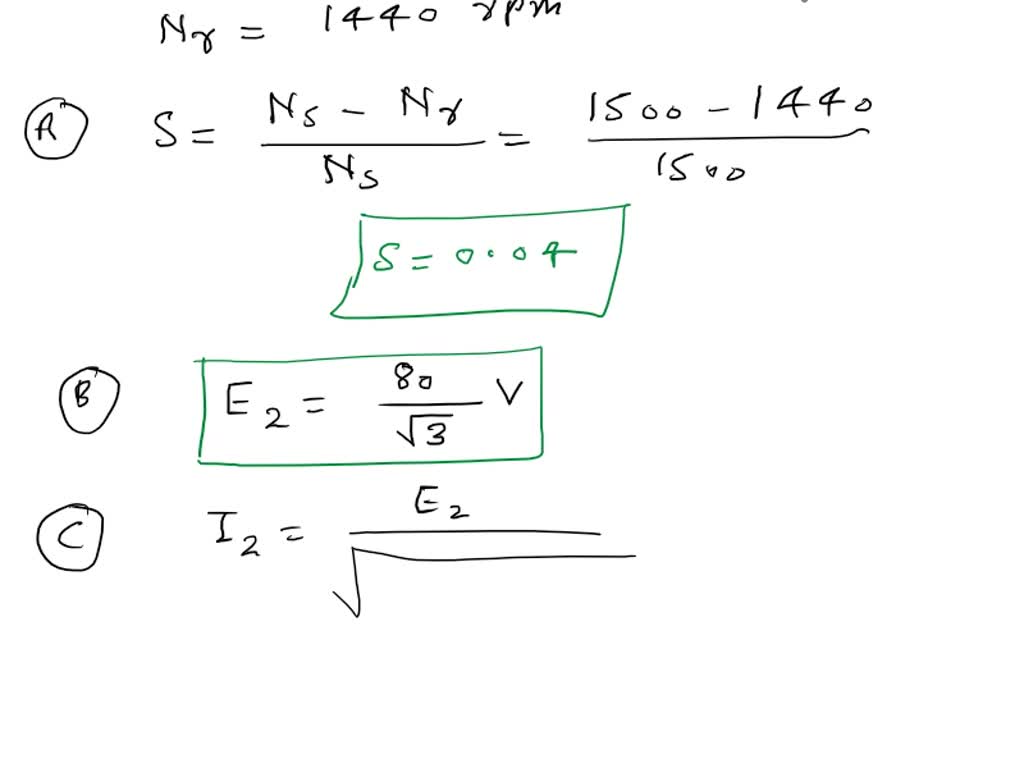 Nr = 1440 rpm
A S = (Ns - Nr)/Ns = (1500 - 1440)/1500
S = 0.04
B E2 = 80/√3 V
C I2 = E2/√